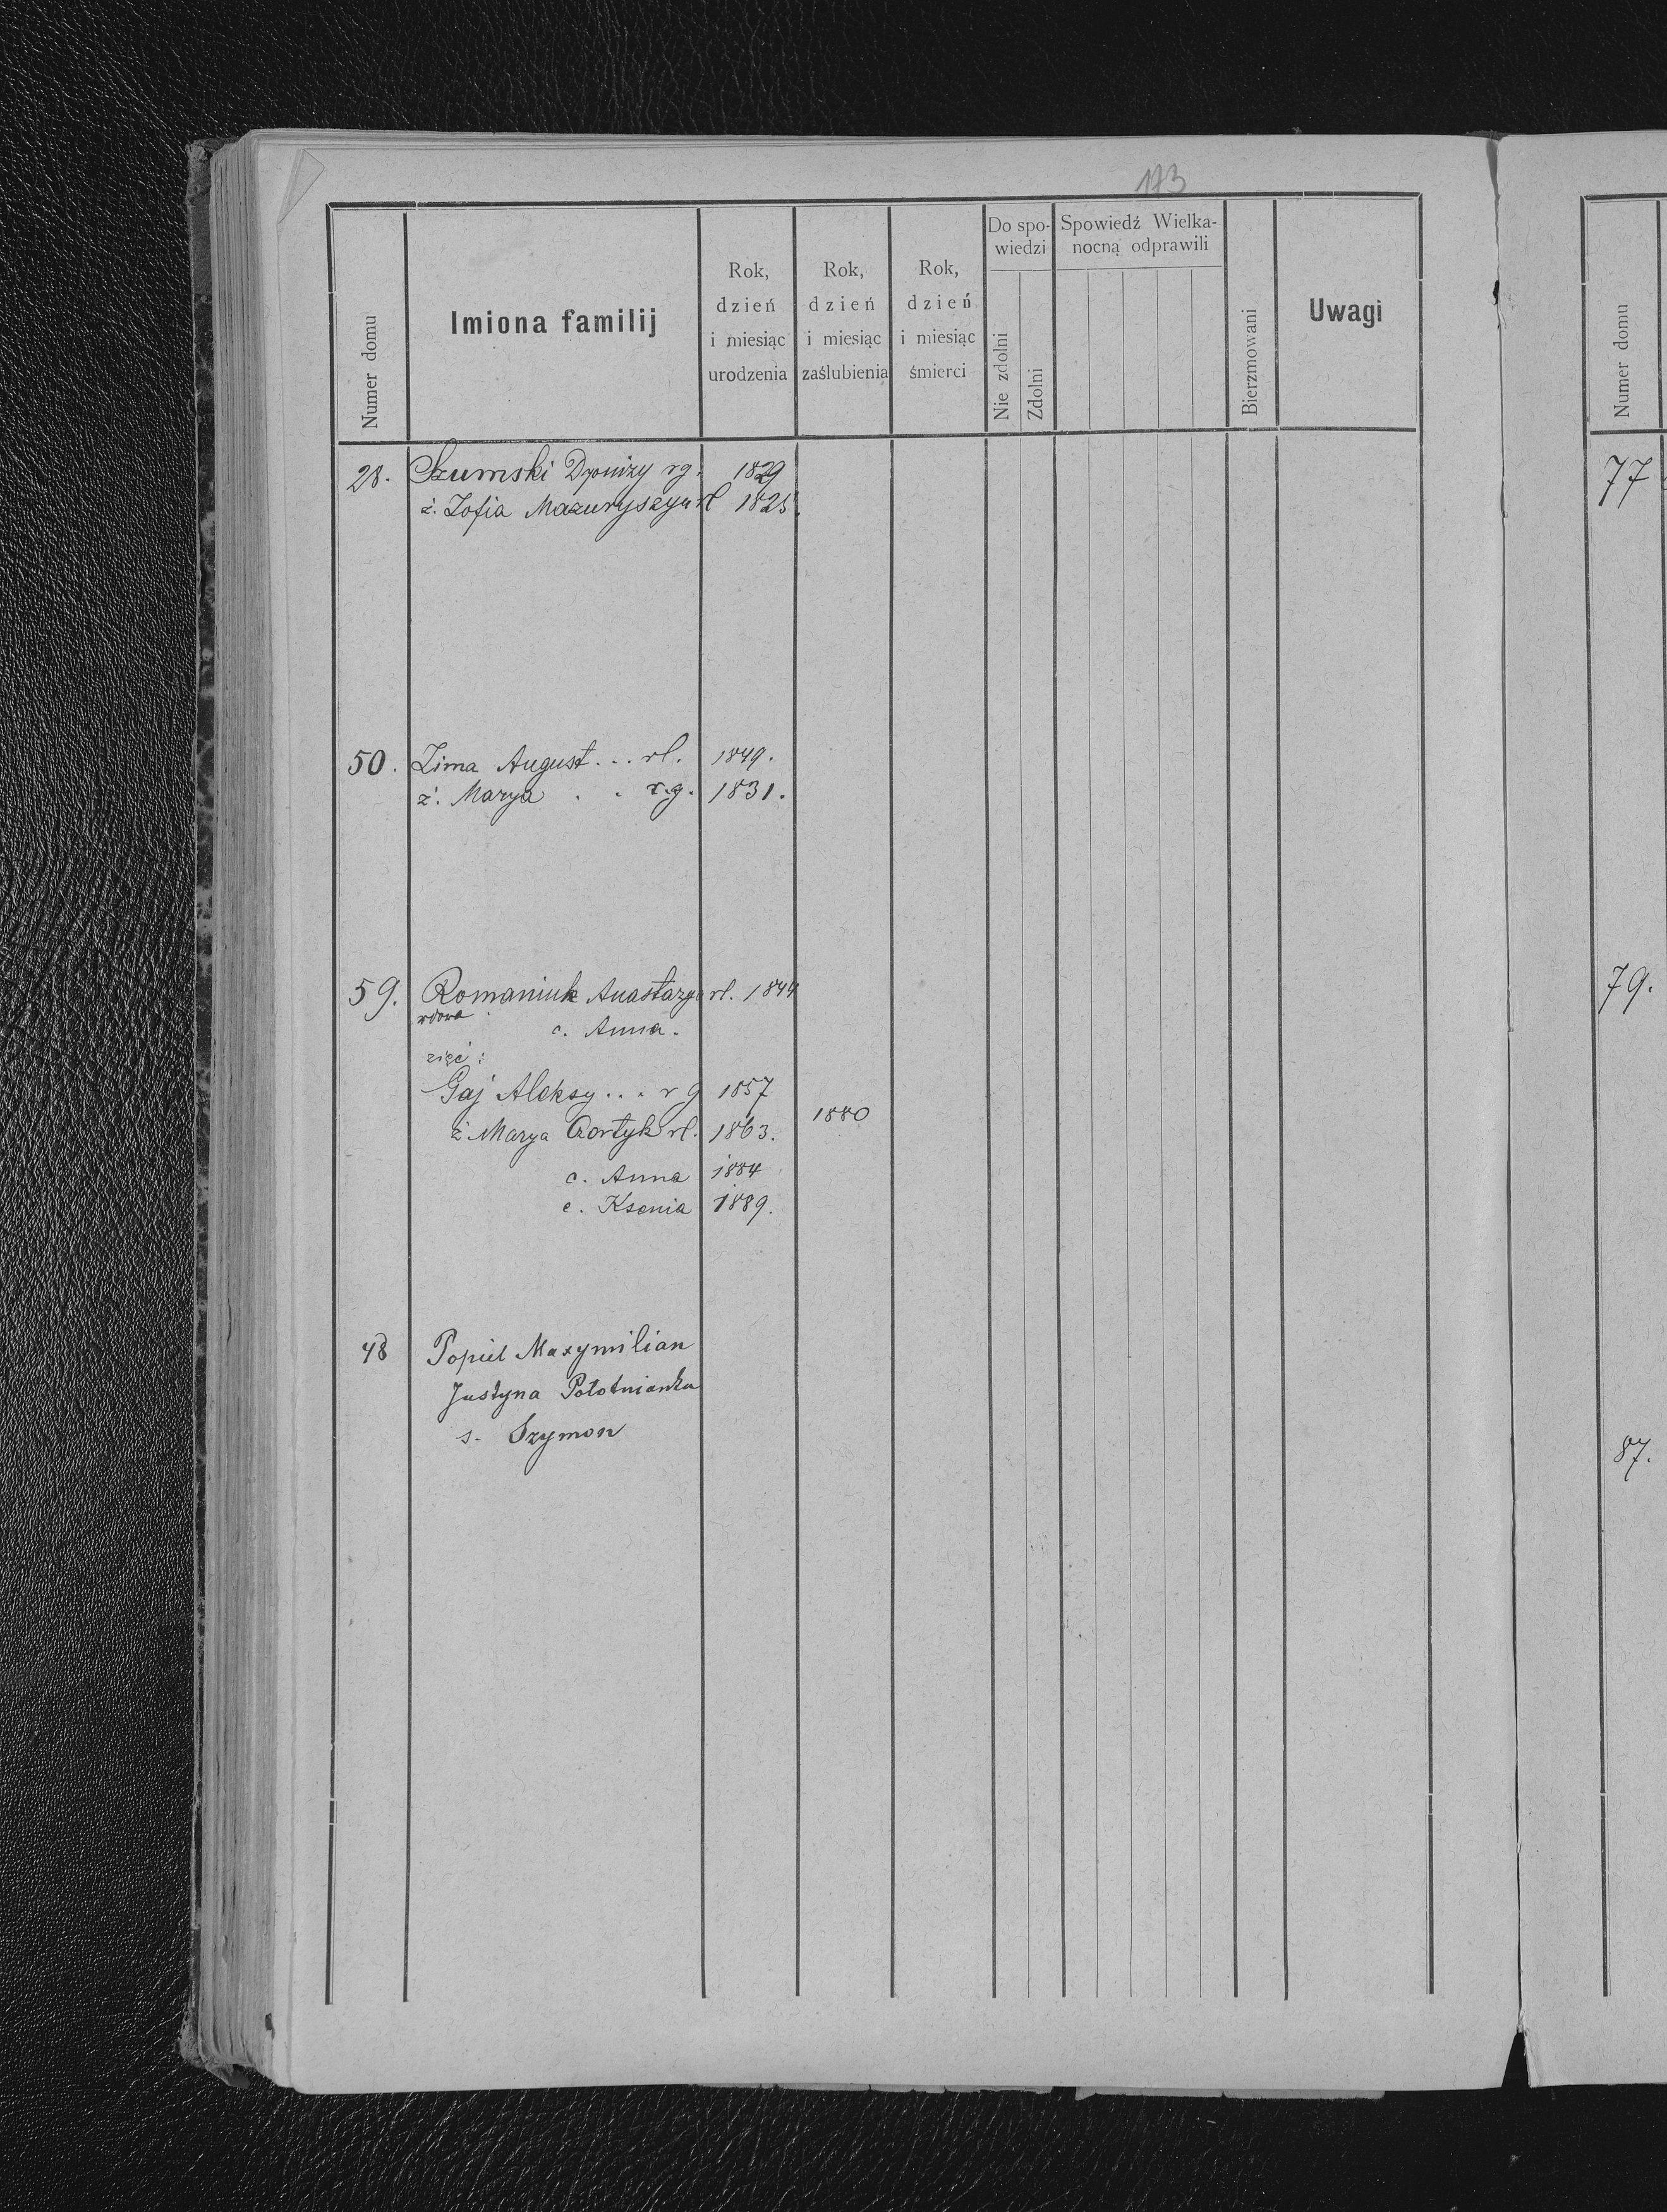 173
Numer domu
Imiona familij
Rok, dzień i miesiąc urodzenia
Rok, dzień i miesiąc zaślubienia
Rok, dzień i miesiąc śmierci
Do spo-
wiedzi
Nie zdolni
Zdolni
Spowiedź Wielka-
nocną odprawili
Bierzmowani
Uwagi
Numer domu
28. Szumski Dyonizy rg. 1829
ż. Zofia Mazuryszyn rl 1825.
77
50. Zima August... rl. 1849.
ż. Marya . . r.g. 1831.
59. Romaniuk Anastazya rl. 1844
79.
wdowa
c. Anna.
zięć:
Gaj Aleksy... rg 1857
1880
ż Marya Czortyk rl. 1863.
c. Anna 1884
c. Ksenia 1889.
48 Popiel Maxymilian
Justyna Połotnianka
s. Szymon
87.